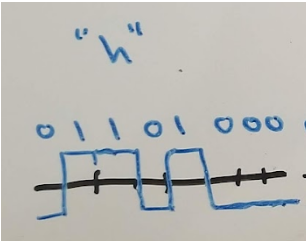 "h"
0 1 1 0 1 0 0 0